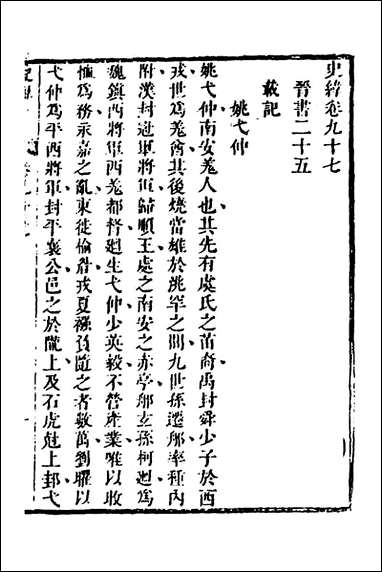 史緯卷九十七
晉書二十五
載記
姚弋仲
姚弋仲南安羌人也其先有虞氏之苗裔禹封舜少子於西
戎世爲羌酋其後燒當雄於洮罕之間九世孫遷那率種內
附漢封冠軍將軍歸順王處之南安之赤亭那玄孫柯迴爲
魏鎮西將軍西羌都督迴生弋仲少英毅不營產業唯以收
恤爲務永嘉之亂東徙榆眉戎夏襁負隨之者數萬劉曜以
弋仲爲平西將軍封平襄公邑之於隴上及石虎尅上邽弋